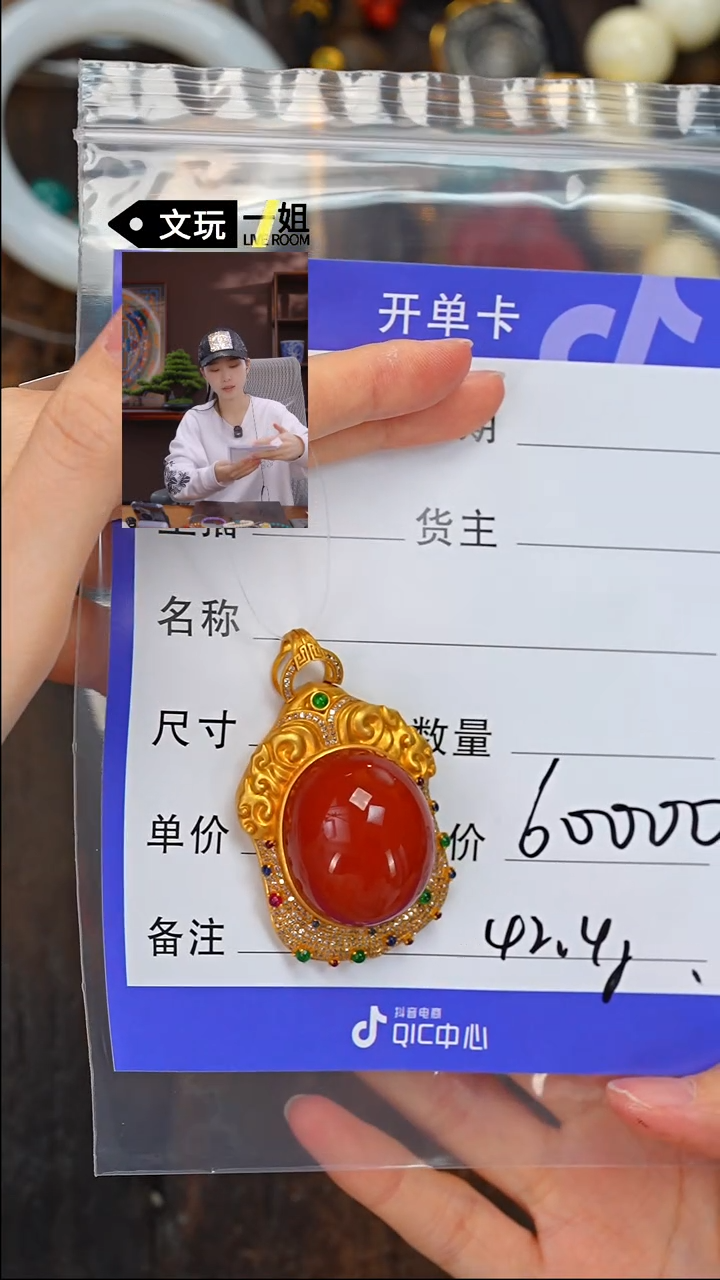 文玩 一姐
LIVE ROOM
开单卡
期
货主
名称
尺寸
数量
单价
价 600000
备注
42.4g
抖音电商
QIC中心